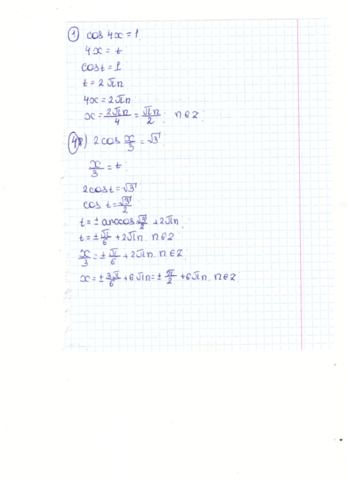 1) cos 4x = 1
4x = t
cos t = 1
t = 2πn
4x = 2πn
x = 2πn/4 = πn/2; n∈z.
2 cos x/3 = √3
x/3 = t
2cos t = √3
cos t = √3/2
t = ± arccos √3/2 + 2πn
t = ± π/6 + 2πn. n∈Z
x/3 = ± π/6 + 2πn. n∈Z
x = ± 3π/6 + 6πn = ± π/2 + 6πn. n∈Z